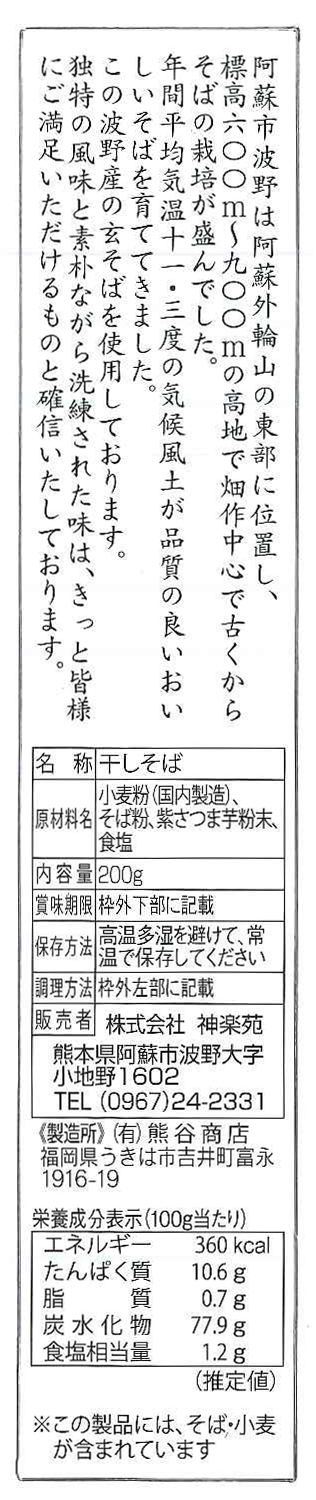 阿蘇市波野は阿蘇外輪山の東部に位置し、
標高六〇〇m〜九〇〇mの高地で畑作中心で古くから
そばの栽培が盛んでした。
年間平均気温十一・三度の気候風土が品質の良いおい
しいそばを育ててきました。
この波野産の玄そばを使用しております。
独特の風味と素朴ながら洗練された味は、きっと皆様
にご満足いただけるものと確信いたしております。
名称 干しそば
原材料名 小麦粉(国内製造)、
そば粉、紫さつま芋粉末、
食塩
内容量 200g
賞味期限 枠外下部に記載
保存方法 高温多湿を避けて、常
温で保存してください
調理方法 枠外左部に記載
販売者 株式会社 神楽苑
熊本県阿蘇市波野大字
小地野1602
TEL (0967)24-2331
《製造所》(有)熊谷商店
福岡県うきは市吉井町富永
1916-19
栄養成分表示(100g当たり)
エネルギー 360 kcal
たんぱく質 10.6 g
脂質 0.7 g
炭水化物 77.9 g
食塩相当量 1.2 g
(推定値)
※この製品には、そば・小麦
が含まれています